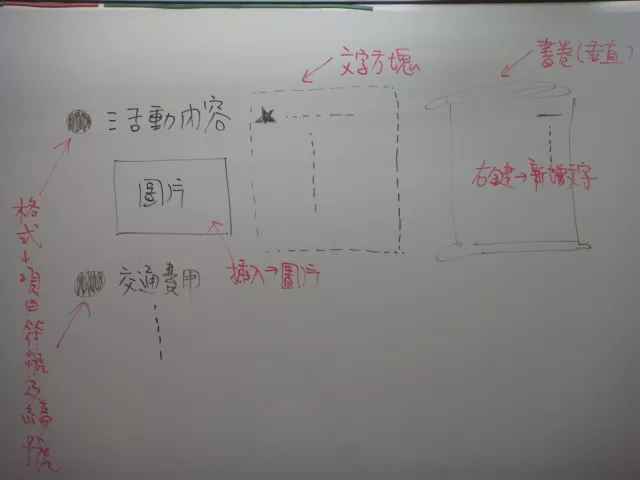 文字方塊
書卷(垂直)
活動內容
圖片
右鍵→新增文字
插入→圖片
交通費用
格式→項目符號及編號